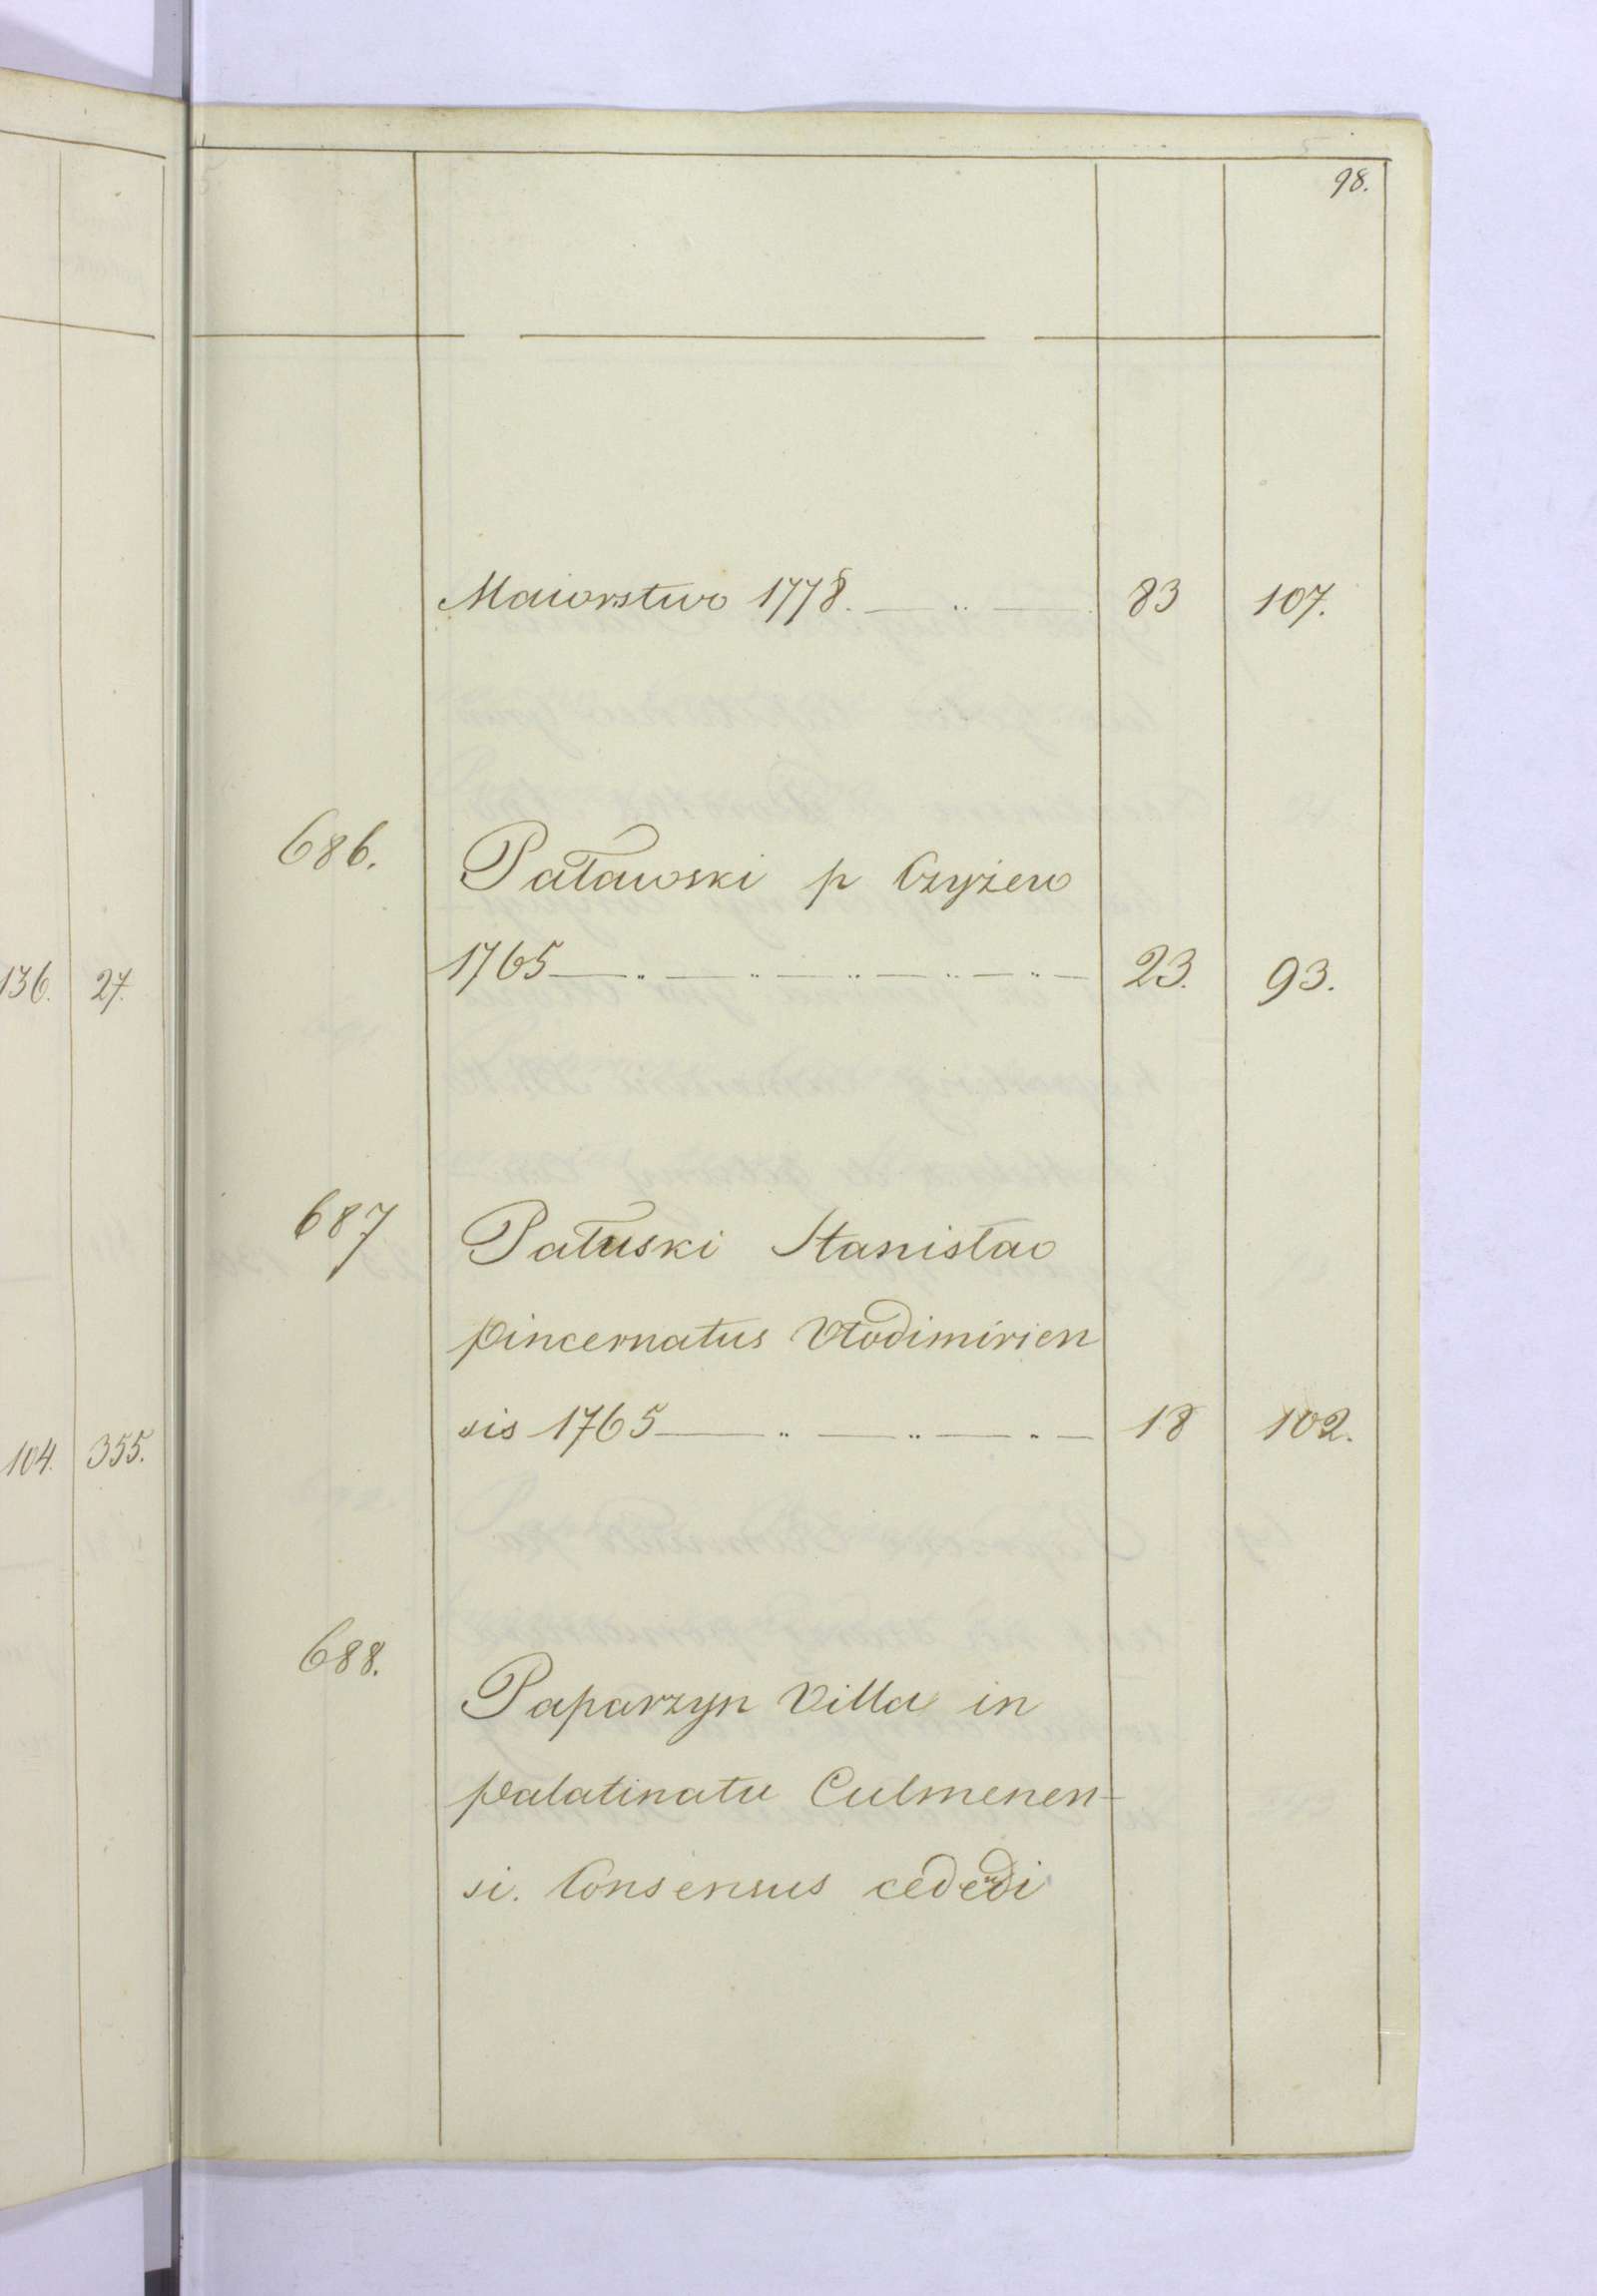 98.
Maiorstwo 1778. — .. — 83 107.
686. Patawski p Czyżew
1765 — .. — .. — .. — .. — .. — 23. 93.
687 Pałuski Stanisław
pincernatus Vlodimirien
sis 1765 — .. — .. — .. — 18 102.
688. Paparzyn Villa in
palatinatu Culmenen-
si. Consensus cedendi
136. 27.
104. 355.